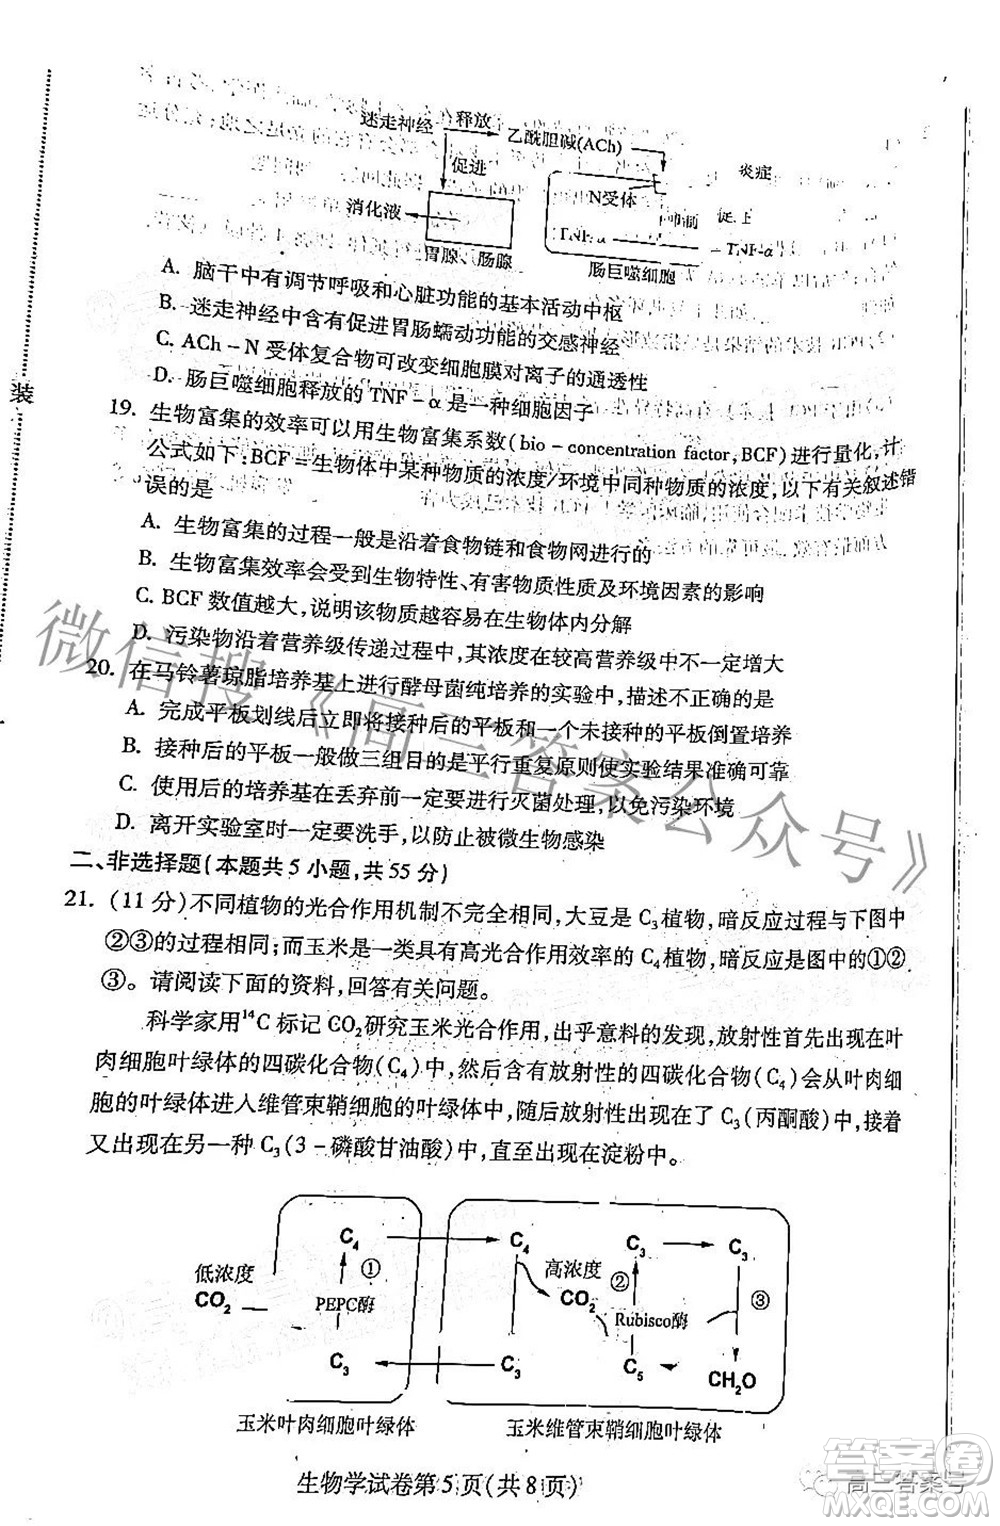 迷走神经
释放
乙酰胆碱(ACh)
促进
炎症
N受体
消化液
抑制
促上
TNF-α
TNF-α
胃腺、肠腺
肠巨噬细胞
A. 脑干中有调节呼吸和心脏功能的基本活动中枢
B. 迷走神经中含有促进胃肠蠕动功能的交感神经
C. ACh-N受体复合物可改变细胞膜对离子的通透性
D. 肠巨噬细胞释放的TNF-α是一种细胞因子
19. 生物富集的效率可以用生物富集系数(bio-concentration factor,BCF)进行量化,计
公式如下:BCF=生物体中某种物质的浓度/环境中同种物质的浓度,以下有关叙述错
误的是
A. 生物富集的过程一般是沿着食物链和食物网进行的
B. 生物富集效率会受到生物特性、有害物质性质及环境因素的影响
C. BCF数值越大,说明该物质越容易在生物体内分解
D. 污染物沿着营养级传递过程中,其浓度在较高营养级中不一定增大
20. 在马铃薯琼脂培养基上进行酵母菌纯培养的实验中,描述不正确的是
A. 完成平板划线后立即将接种后的平板和一个未接种的平板倒置培养
B. 接种后的平板一般做三组目的是平行重复原则使实验结果准确可靠
C. 使用后的培养基在丢弃前一定要进行灭菌处理,以免污染环境
D. 离开实验室时一定要洗手,以防止被微生物感染
二、非选择题(本题共5小题,共55分)
21. (11分)不同植物的光合作用机制不完全相同,大豆是C₃植物,暗反应过程与下图中
②③的过程相同;而玉米是一类具有高光合作用效率的C₄植物,暗反应是图中的①②
③。请阅读下面的资料,回答有关问题。
科学家用¹⁴C标记CO₂研究玉米光合作用,出乎意料的发现,放射性首先出现在叶
肉细胞叶绿体的四碳化合物(C₄)中,然后含有放射性的四碳化合物(C₄)会从叶肉细
胞的叶绿体进入维管束鞘细胞的叶绿体中,随后放射性出现在了C₃(丙酮酸)中,接着
又出现在另一种C₃(3-磷酸甘油酸)中,直至出现在淀粉中。
C₄
C₄
C₃
C₃
低浓度
CO₂
①
PEPC酶
高浓度
CO₂
②
Rubisco酶
③
C₃
C₃
C₅
CH₂O
玉米叶肉细胞叶绿体
玉米维管束鞘细胞叶绿体
生物学试卷第5页(共8页)
装
微信搜《高三答案公众号》
高三答案号
答案圈
MXQE.COM